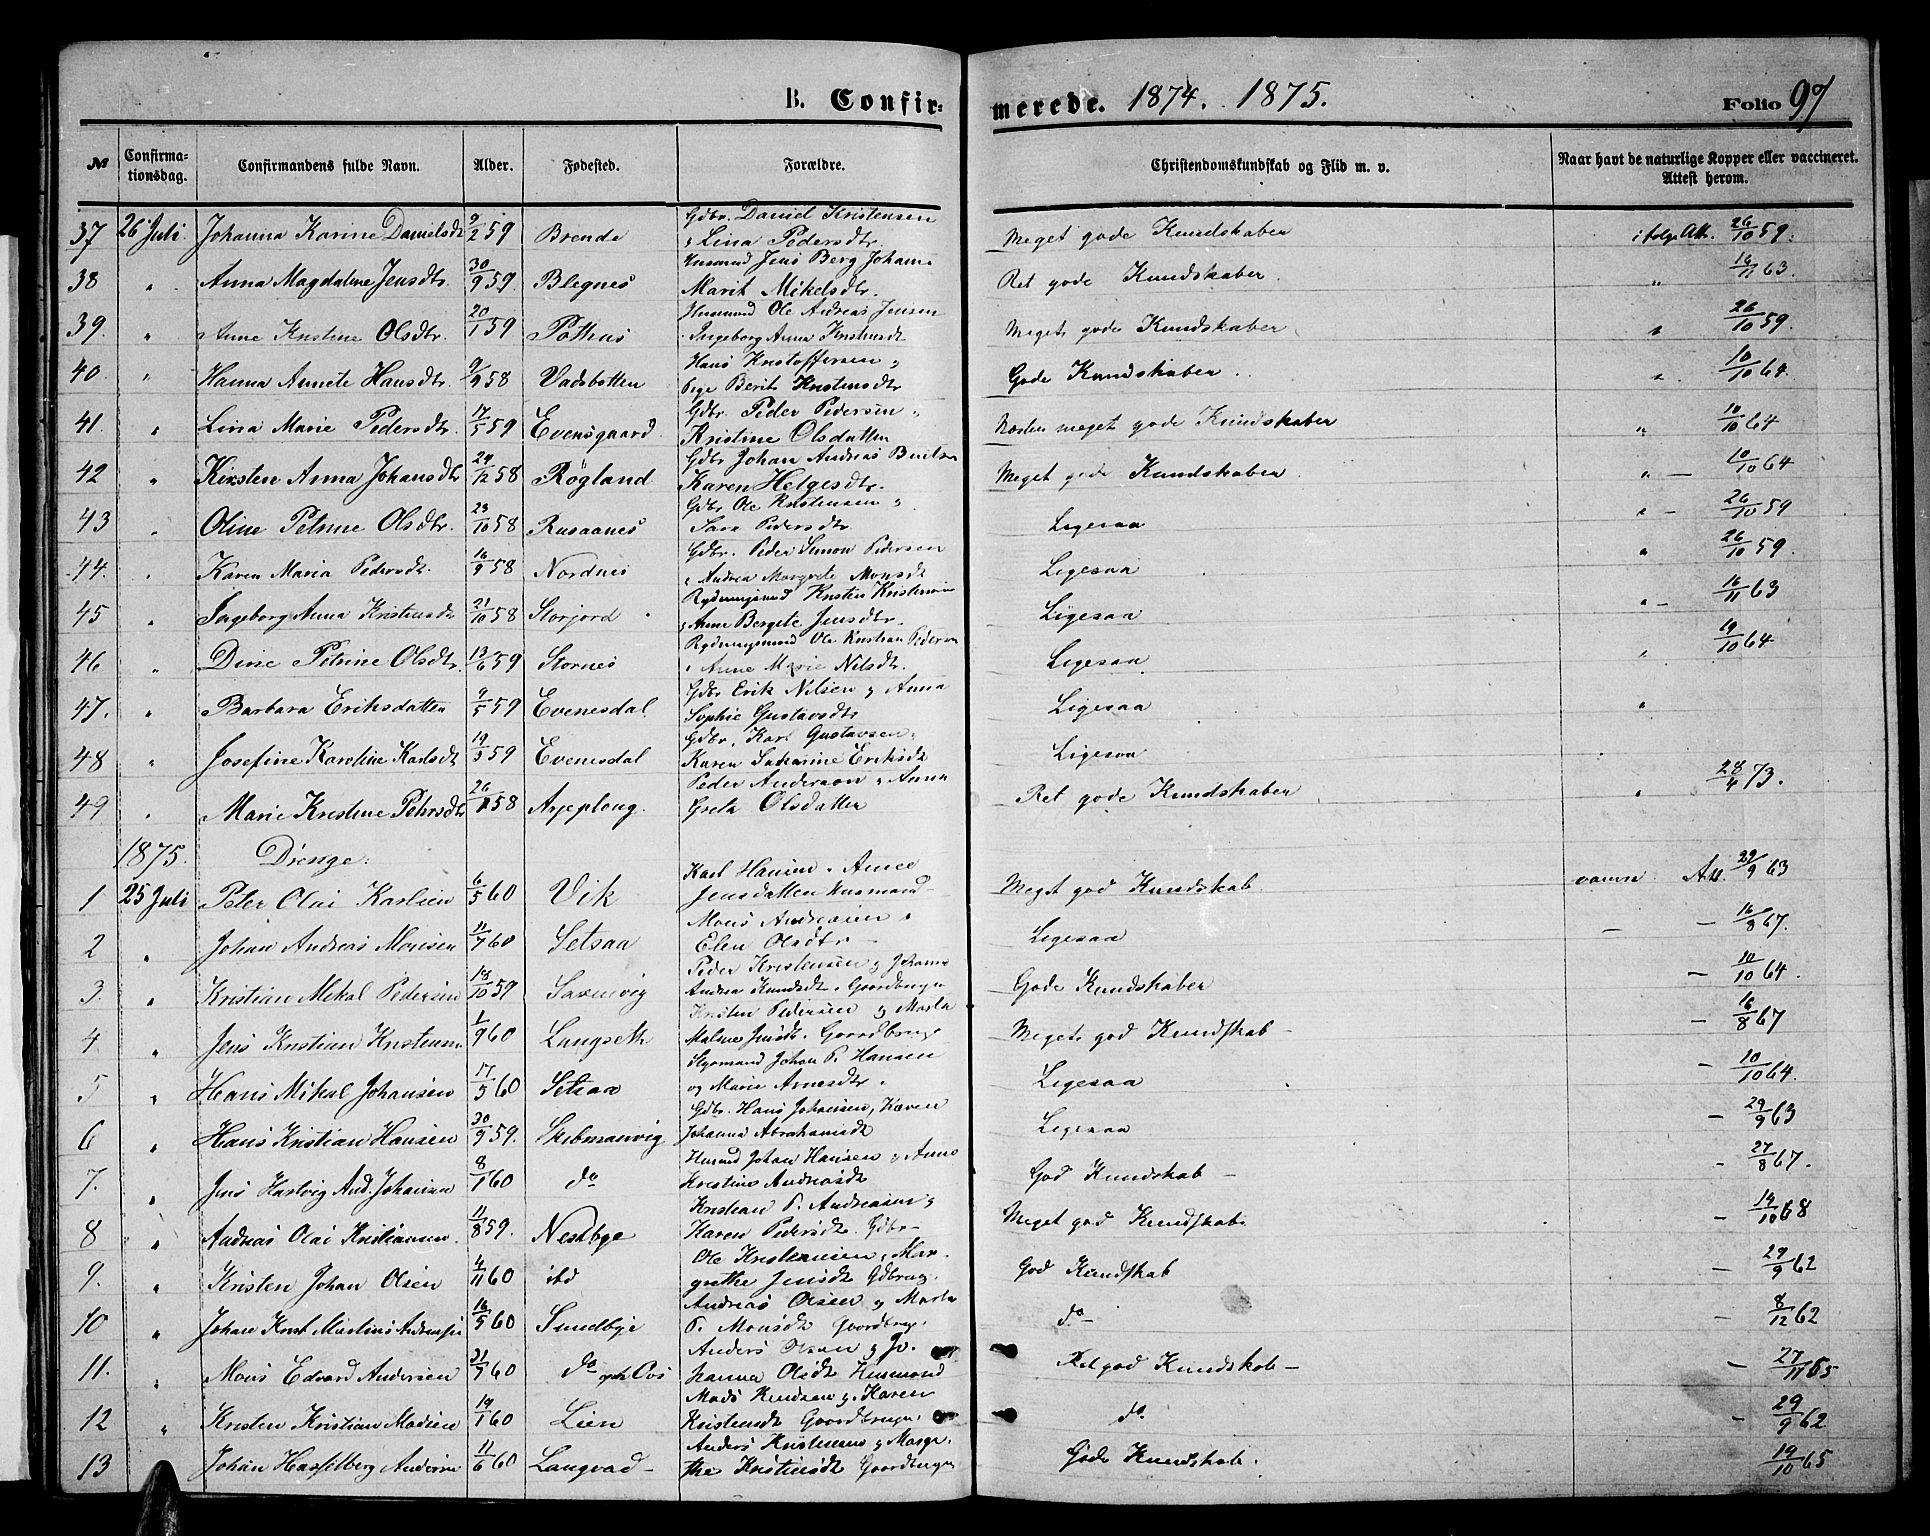 B. Confir-merede. 1874. 1875. Folio 97
No Confirmationsdag. Confirmandens fulde Navn. Alder. Fødested. Forældre. Christendomskundskab og Flid m. v. Naar havt de naturlige Kopper eller vaccineret. Attest herom.
37 26 Juli Johanna Karine Danielsdt 9/2 59 Brende Gdbr. Daniel Kristensen
" Lina Pedersdtr. Meget gode Kundskaber ifølge Att. 26/10 59.
38 " Anna Magdaline Jensdtr. 30/9 59 Blegnes Husmand Jens Berg Johans
Marit Mikelsdtr. Ret gode Kundskaber. " 16/11 63.
39. " Anne Kristine Olsdtr. 20/1 59 Pothus Husmand Ole Andreas Jensen
Ingeborg Anna Kristensdt Meget gode Kundskaber " 26/10 59.
40 " Hanna Annete Hansdtr. 9/9 58 Vadsbotten Hans Kristoffersen "
Pige Berit Kristensdtr Gode Kundskaber. " 10/10 64.
41. " Lina Marie Pedersdtr. 17/5 59 Evensgaard. Gdbr. Peder Pedersen "
Kristine Olsdatten Næsten meget gode Kundskaber " 10/10 64
42 " Kirsten Anna Johansdtr 24/12 58 Røgland Gdbr Johan Andreas
Karen Helgesdtr. Meget gode Kundskaber " - 10/10 64
43 " Oline Petrine Olsdtr. 23/10 58 Rusaanes Gdbr Ole Kristensen "
Sara Pedersdtr Ligesaa " - 26/10 59
44. " Karen Maria Pedersdt. 16/9 58 Nordnes Gdbr. Peder Simon Pedersen
" Andrea Margrete Monsdt Ligesaa " 26/10 59.
45 " Ingeborg Anna Kristensdt 21/10 58 Storjord Rydningsmd Kristen Kristensen
" Anne Bergite Jensdtr. Ligesaa " - 16/11 63
46 " Dine Petrine Olsdtr. 13/6 59 Stornes Rydningsmand Ole Kristian Pedersen
" Anne Marie Nilsdtr. Ligesaa " 19/10 64
47. " Barbara Eriksdatten 9/5 59 Evenesdal. Gdbr Erik Nilsen og Anna
Sophie Gustavsdtr Ligesaa "
48 " Josefine Karoline Karlsdt 19/3 59 Evenesdal Gdbr. Karl Gustavsen "
Karen Catharine Eriksdt Ligesaa
49 " Marie Kristine Pehrsdtr 26/1 58 Arjeplong. Peder Anderson " Anna
Greta Olsdatter Ret gode Kundskaber " 28/4 73.
1875. Drenge.
1 25 Juli Peter Olai Karlsen 6/5 60 Vik Karl Hansen " Anne
Jensdatten Husmand - Meget god Kundskab vaccin Att. 29/9 63
2 " Johan Andreas Monsen 11/7 60 Setsaa Mons Andreasen "
Elen Olsdtr - Ligesaa - - 16/8 67.
3. " Kristian Mikal Pedersen 18/10 59 Saxenvig Peder Kristensen og Johanna
Andrea Knudsdt. Gaardbruger Gode Kundskaber - 10/10 64.
4 " Jens Kristian Kristensen 1/9 60 Langseth Kristen Pedersen og Marta
Malene Jensdt. Gaardbruger Meget god Kundskab - - 16/8 67
5 " Hans Mikal Johansen 17/5 60 Setsaa Styrmand Johan P. Hansen
og Marie Arnesdtr. Ligesaa - 10/10 64.
6 " Hans Kristian Hansen 30/9 59. Skibmanvig Gdbr. Hans Johansen, Karen
Johanna Abrahamsdt Ligesaa - 29/9 63
7. " Jens Hartvig And. Johansen 8/1 60 do Husmd Johan Hansen og Anne
Kristine Andreasdt God Kundskab - - 27/8 67.
8 " Andreas Olai Kristiansen. 11/8 59. Nestbye Kristian P. Andreasen og
Karen Pedersdt Gdbr - Meget god Kundskab - 19/10 68
9. " Kristen Johan Olsen 4/11 60 ibd Ole Kristensen, Mar-
grethe Jensdt Gdbrug. God Kundskab - 29/9 62
10 " Johan Krist Martinus Andreasen 16/5 60 Sundbye Andreas Olsen og Marta
P. Monsdt Gaardbrug. do - - 8/12 62
11. " Mons Edvard Andersen 31/7 60 do Anders Olsen og Jo-
hanna Olsdt Husmand Ret god Kundskab - - 27/11 65
12 " Kristen Kristian Madsen 19/1 60 Lien Mads Knudsen og Karen
Kristensdt Gaardbruger do. - 29/9 62.
13 " Johan Hasselberg Andersen 11/6 60 Langvad - Anders Kristensen og Margre-
the Kristensdt Gaardbruger Gode Kundskab. 19/10 65